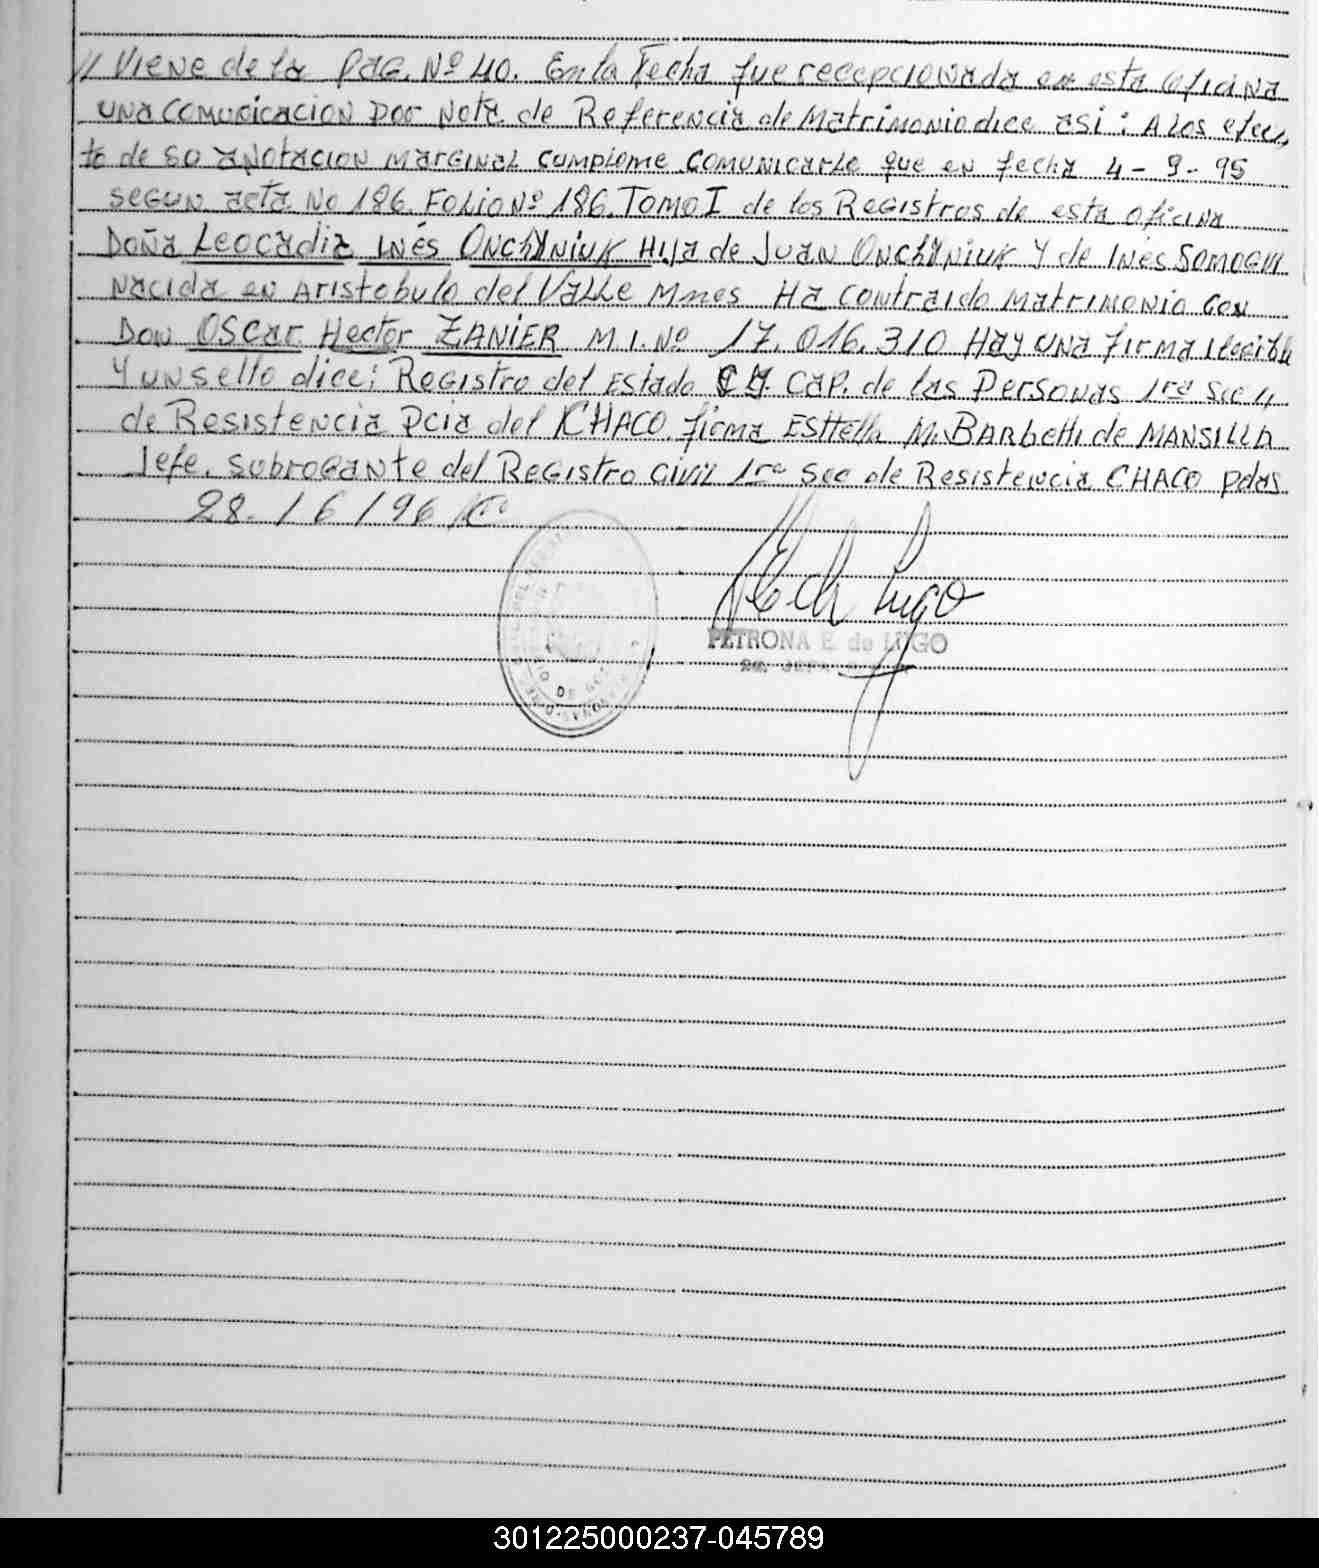 // Viene de la Pag. Nº 40. En la Fecha fue recepcionada en esta oficina
una comunicacion por Nota de Referencia de Matrimonio dice asi: A los efec,
to de so anotacion marginal cumplome comunicarle que en fecha 4 - 9 - 95
segun acta No 186. Folio Nº 186. Tomo I de los Registros de esta oficina
Doña Leocadia Inés ONCHYNIUK Hija de Juan ONCHYNIUK Y de Inés
Nacida en Aristobulo del Valle Mnes Ha contraido matrimonio con
Don Oscar Hector ZANIER M.I. Nº 17.016.310 Hay una firma ilegible
Y un sello dice: Registro del Estado Cap. de las Personas 1ra Sec
de Resistencia Pcia del CHACO. firma Esttella M. Barbetti de MANSILLA
Jefe. subrogante del Registro civil 1ra Sec de Resistencia CHACO Pdas
28. / 6 / 96
Lugo
PETRONA E. de LUGO
301225000237-045789